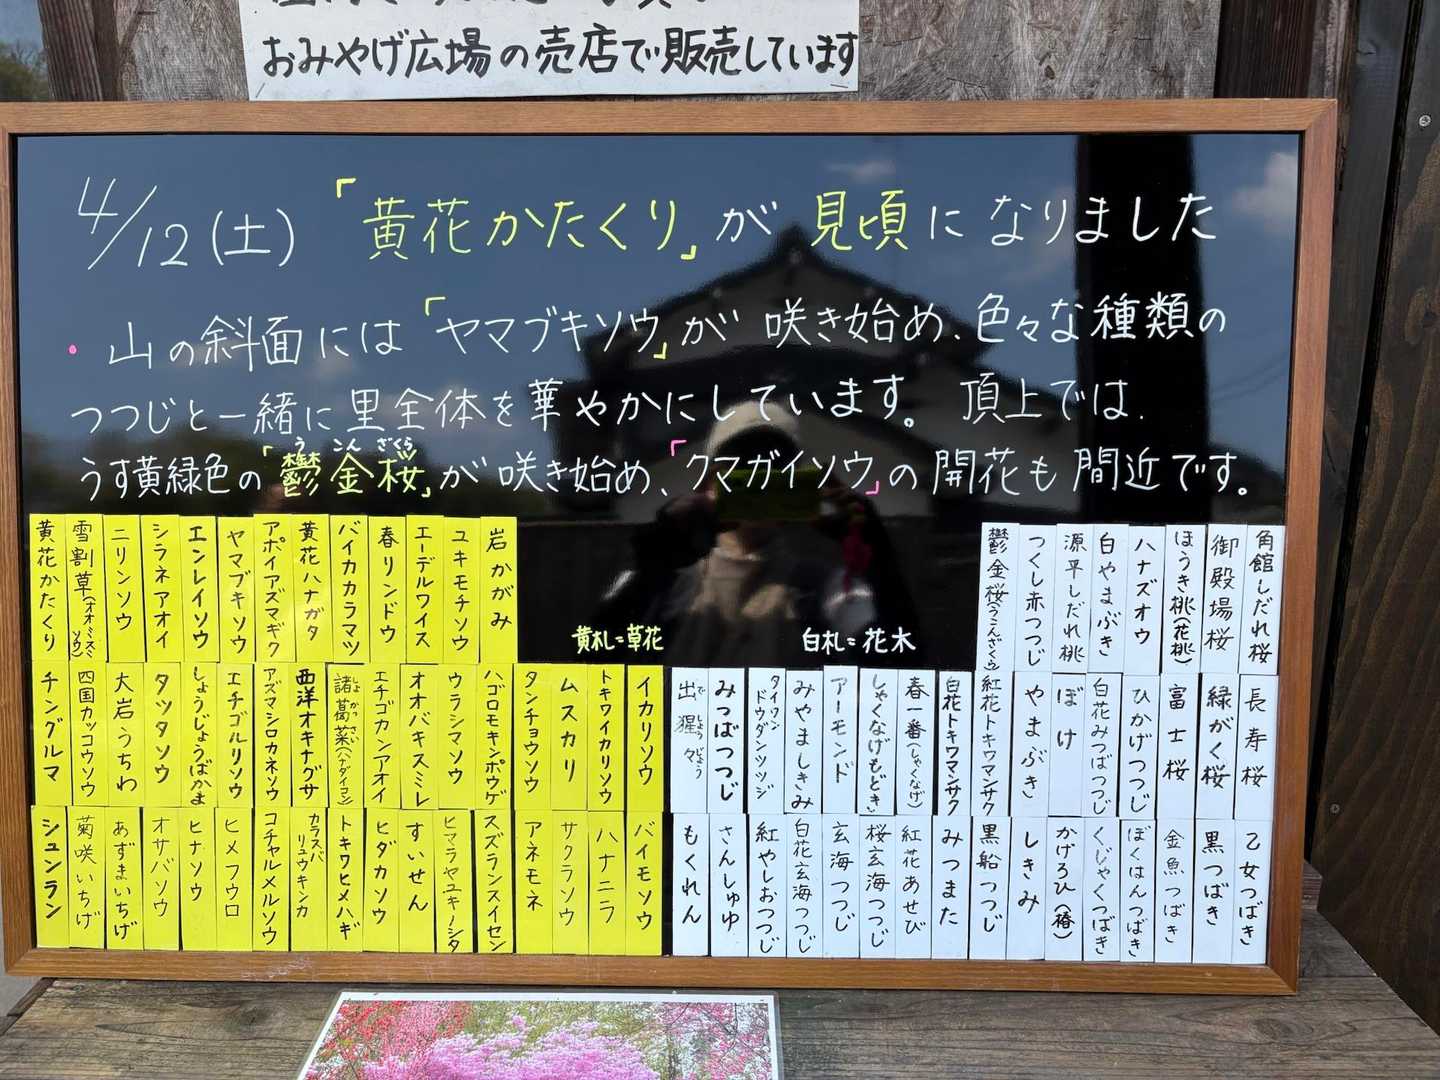 おみやげ広場の売店で販売しています
4/12(土)「黄花かたくり」が見頃になりました
・山の斜面には「ヤマブキソウ」が咲き始め、色々な種類の
つつじと一緒に里全体を華やかにしています。頂上では、
うす黄緑色の「鬱金桜」が咲き始め、「クマガイソウ」の開花も間近です。
うこんざくら
黄札=草花
白札=花木
黄花かたくり
雪割草(オオミスミソウ)
ニリンソウ
シラネアオイ
エンレイソウ
ヤマブキソウ
アポイアズマギク
黄花ハナガタ
バイカカラマツ
春リンドウ
エーデルワイス
ユキモチソウ
岩かがみ
チングルマ
四国カッコウソウ
大岩うちわ
タツタソウ
しょうじょうばかま
エチゴルリソウ
アズマシロカネソウ
西洋オキナグサ
諸葛菜(ハナダイコン)
しょかつさい
エチゴカンアオイ
オオバキスミレ
ウラシマソウ
ハゴロモキンポウゲ
タンチョウソウ
ムスカリ
トキワイカリソウ
イカリソウ
シュンラン
菊咲いちげ
あずまいちげ
オサバソウ
ヒナソウ
ヒメフウロ
コチャルメルソウ
カラスバリュウキンカ
トキワヒメハギ
ヒダカソウ
すいせん
ヒマラヤユキノシタ
スズランスイセン
アネモネ
サクラソウ
ハナニラ
バイモソウ
角館しだれ桜
御殿場桜
ほうき桃(花桃)
ハナズオウ
白やまぶき
源平しだれ桃
つくし赤つつじ
鬱金桜(うこんざくら)
長寿桜
緑がく桜
富士桜
ひかげつつじ
白花みつばつつじ
ぼけ
やまぶき
紅花トキワマンサク
白花トキワマンサク
春一番(しゃくなげ)
しゃくなげもどき
アーモンド
みやましきみ
タイワンドウダンツツジ
みつばつつじ
出猩々
でしょうじょう
乙女つばき
黒つばき
金魚つばき
ぼくはんつばき
くじゃくつばき
かげろひ(椿)
しきみ
黒船つつじ
みつまた
紅花あせび
桜玄海つつじ
玄海つつじ
白花玄海つつじ
紅やしおつつじ
さんしゅゆ
もくれん